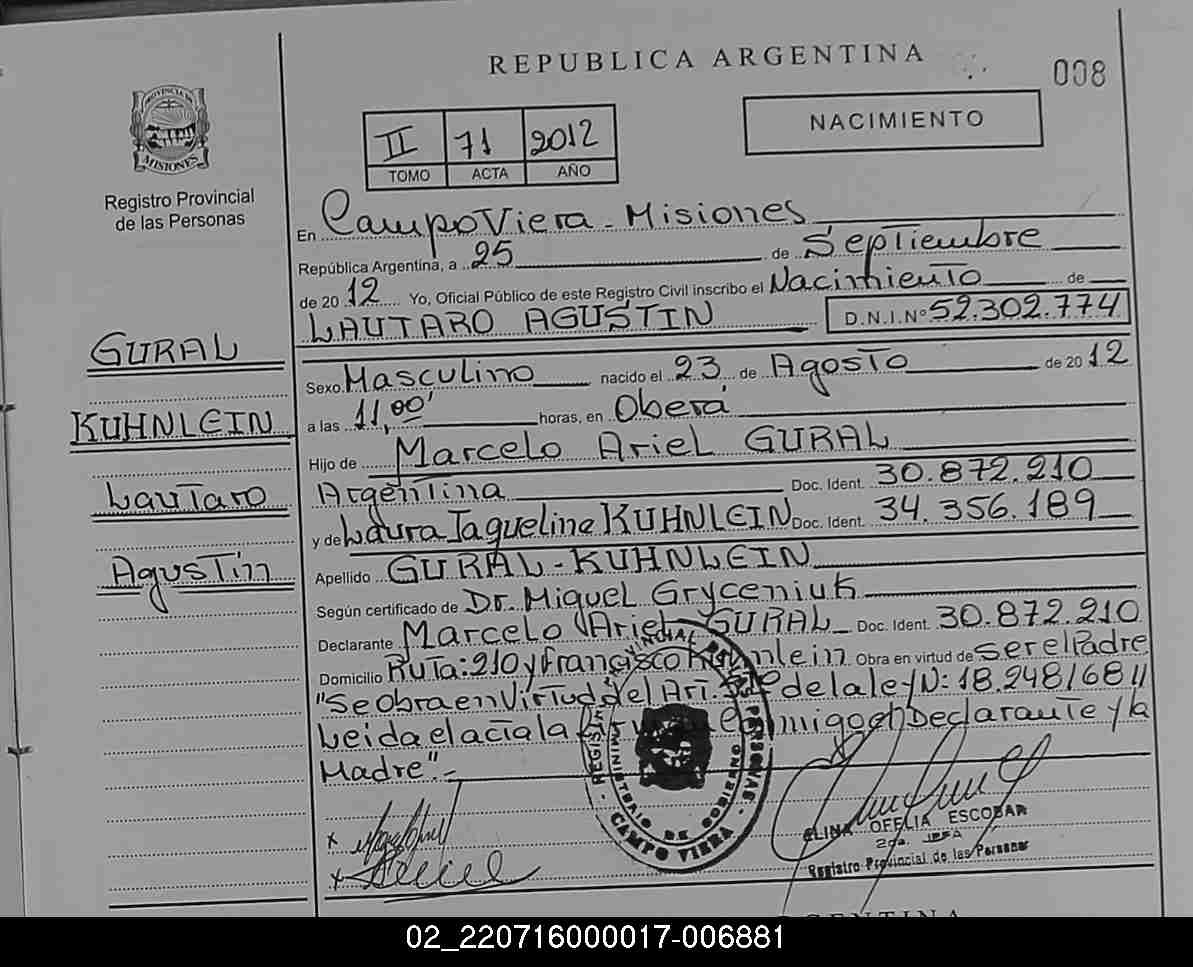 REPUBLICA ARGENTINA
008
PROVINCIA DE
MISIONES
Registro Provincial
de las Personas
II 71 2012
TOMO ACTA AÑO
NACIMIENTO
En Campo Viera - Misiones
República Argentina, a 25 de Septiembre
de 2012 Yo, Oficial Público de este Registro Civil inscribo el Nacimiento de
LAUTARO AGUSTIN D.N.I.Nº 52.302.774
GURAL
KUHNLEIN
Lautaro
Agustin
Sexo Masculino nacido el 23 de Agosto de 2012
a las 11,00' horas, en Oberá
Hijo de Marcelo Ariel GURAL
Argentina Doc. Ident. 30.872.210
y de Laura Jaqueline KUHNLEIN Doc. Ident. 34.356.189
Apellido GURAL-KUHNLEIN
Según certificado de Dr. Miguel Gryceniuk
Declarante Marcelo Ariel GURAL Doc. Ident. 30.872.210
Domicilio Ruta:210 y Francisco Kuhnlein Obra en virtud de ser el Padre
"Se obra en Virtud del Art. de la ley N: 18.248/68"
Leida el acta la conmigo el Declarante y la
Madre".-
REGISTRO PROVINCIAL DE LAS PERSONAS
MINISTERIO DE GOBIERNO
CAMPO VIERA
ELINA OFELIA ESCOBAR
2da. JEFA
Registro Provincial de las Personas
ARGENTINA
02_220716000017-006881